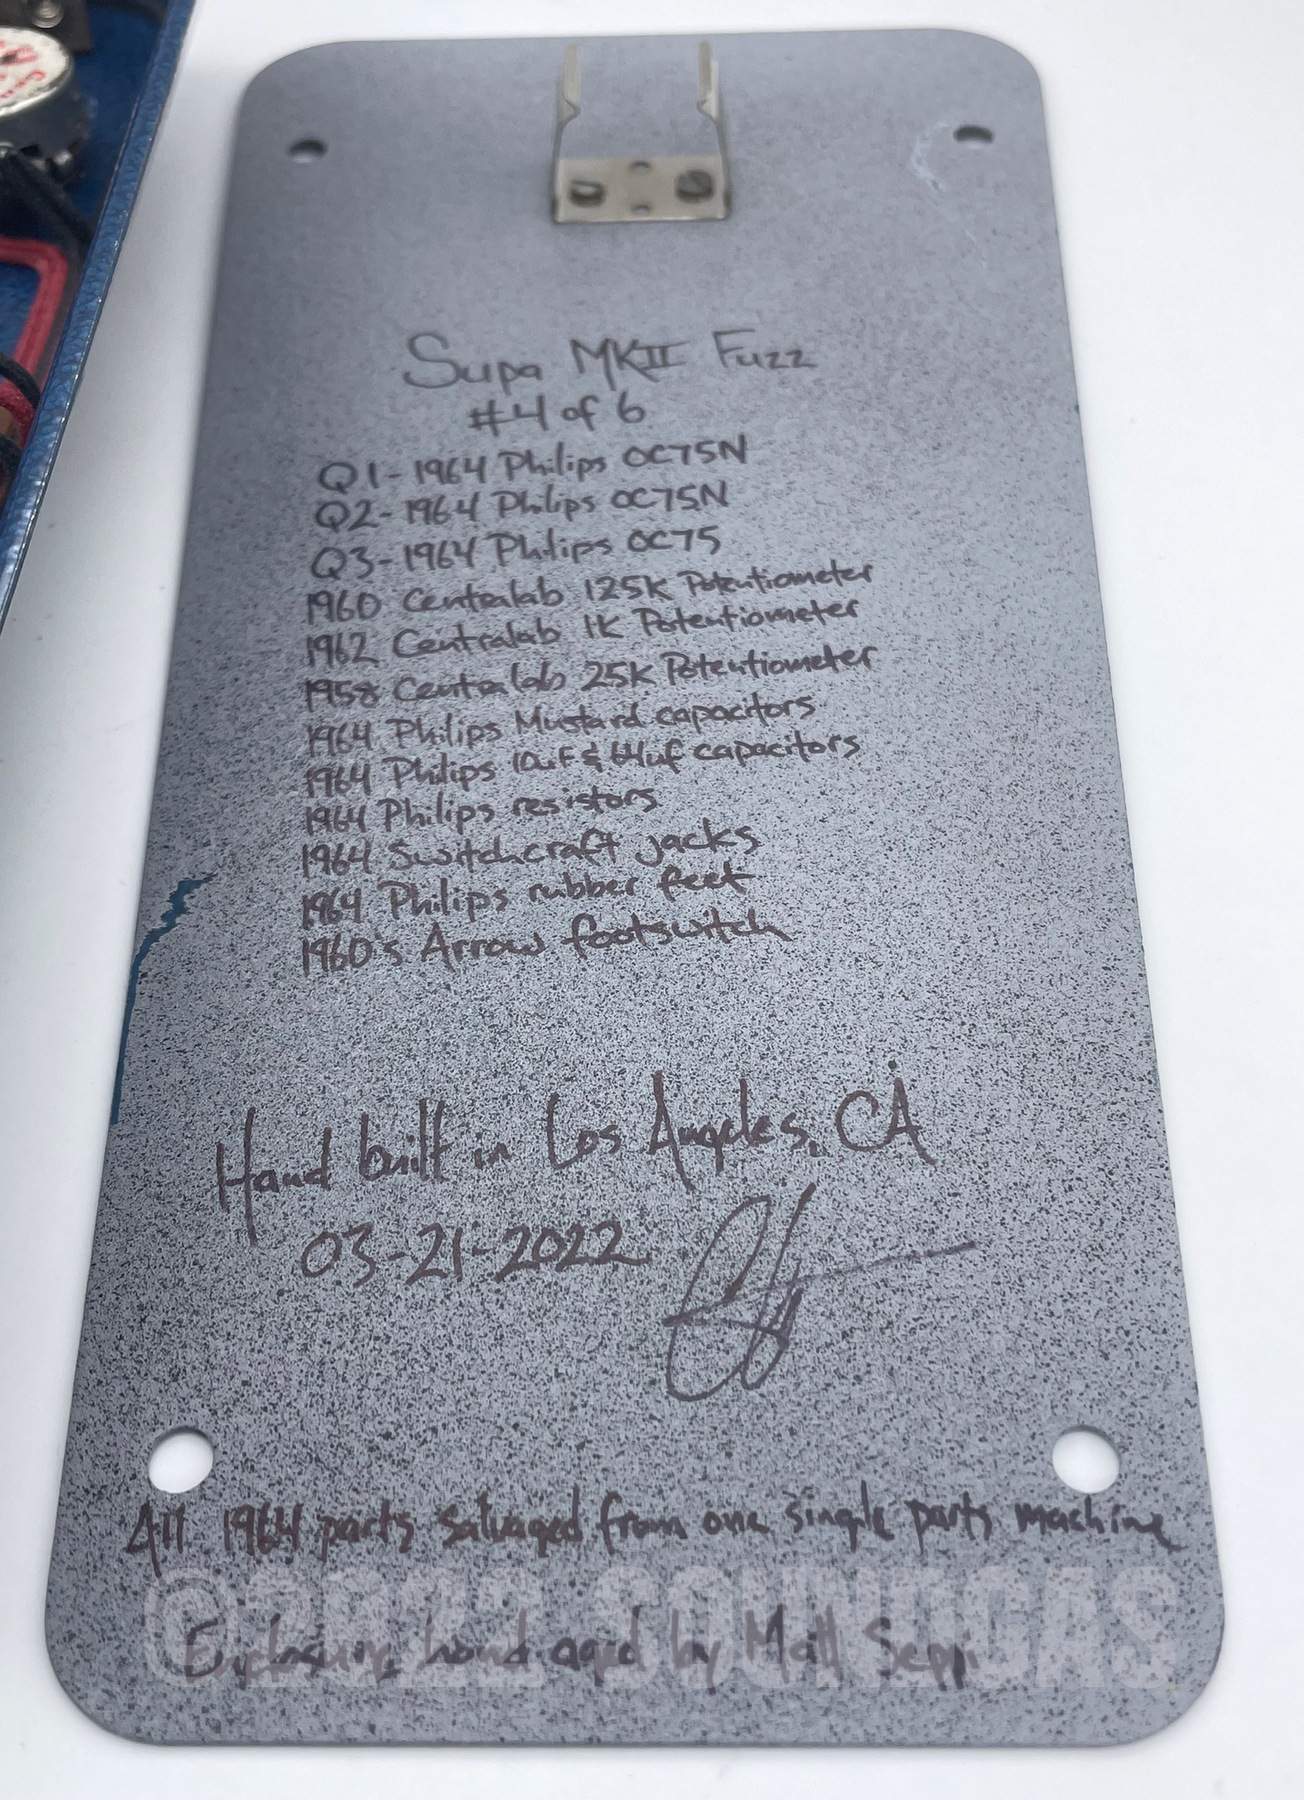 Supa MKII Fuzz
#4 of 6
Q1-1964 Philips OC75N
Q2-1964 Philips OC75N
Q3-1964 Philips OC75
1960 Centralab 125K Potentiometer
1962 Centralab 1K Potentiometer
1958 Centralab 25K Potentiometer
1964 Philips Mustard capacitors
1964 Philips 10uF & 64uf capacitors
1964 Philips resistors
1964 Switchcraft jacks
1964 Philips rubber feet
1960's Arrow footswitch
Hand built in Los Angeles, CA
03-21-2022
All 1964 parts salvaged from one single parts machine
©2022 SOUNDGAS
Enclosure hand aged by Matt Seppi